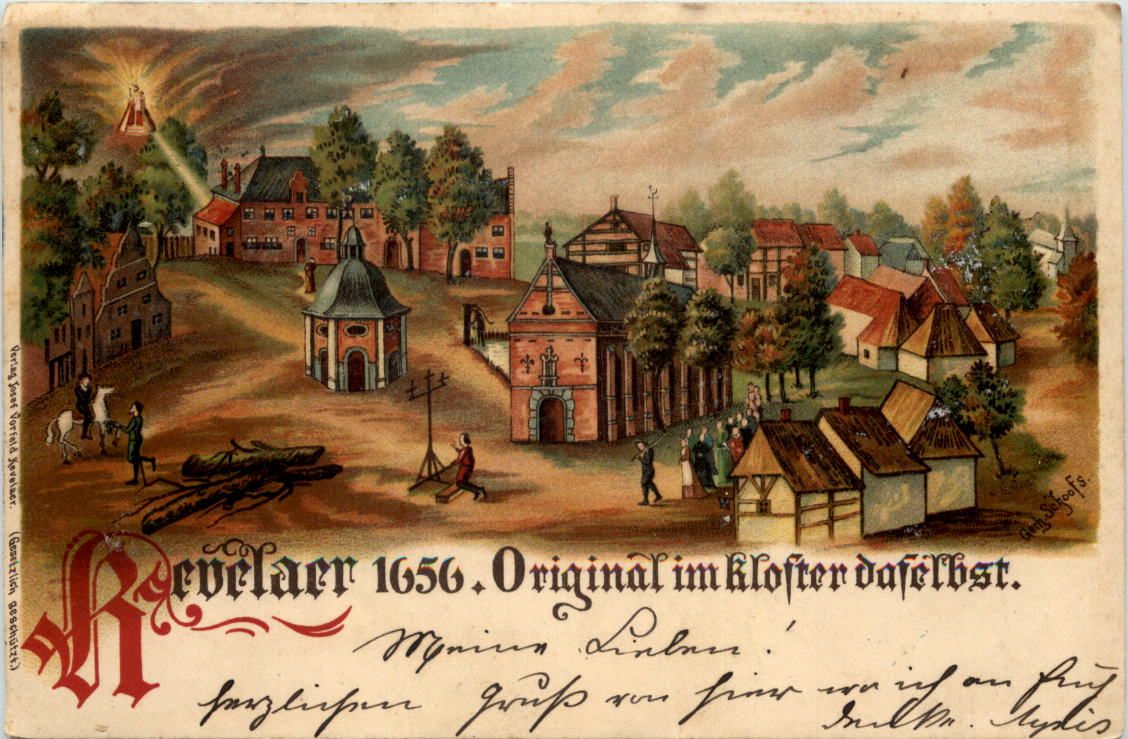 Verlag Josef Vorfeld Kevelaer. (Gesetzlich geschützt.)
Gerh. Schoofs.
Kevelaer 1656. Original im Kloster daselbst.
Meine Lieben!
herzlichen Gruß von hier wo ich an Euch
denke.